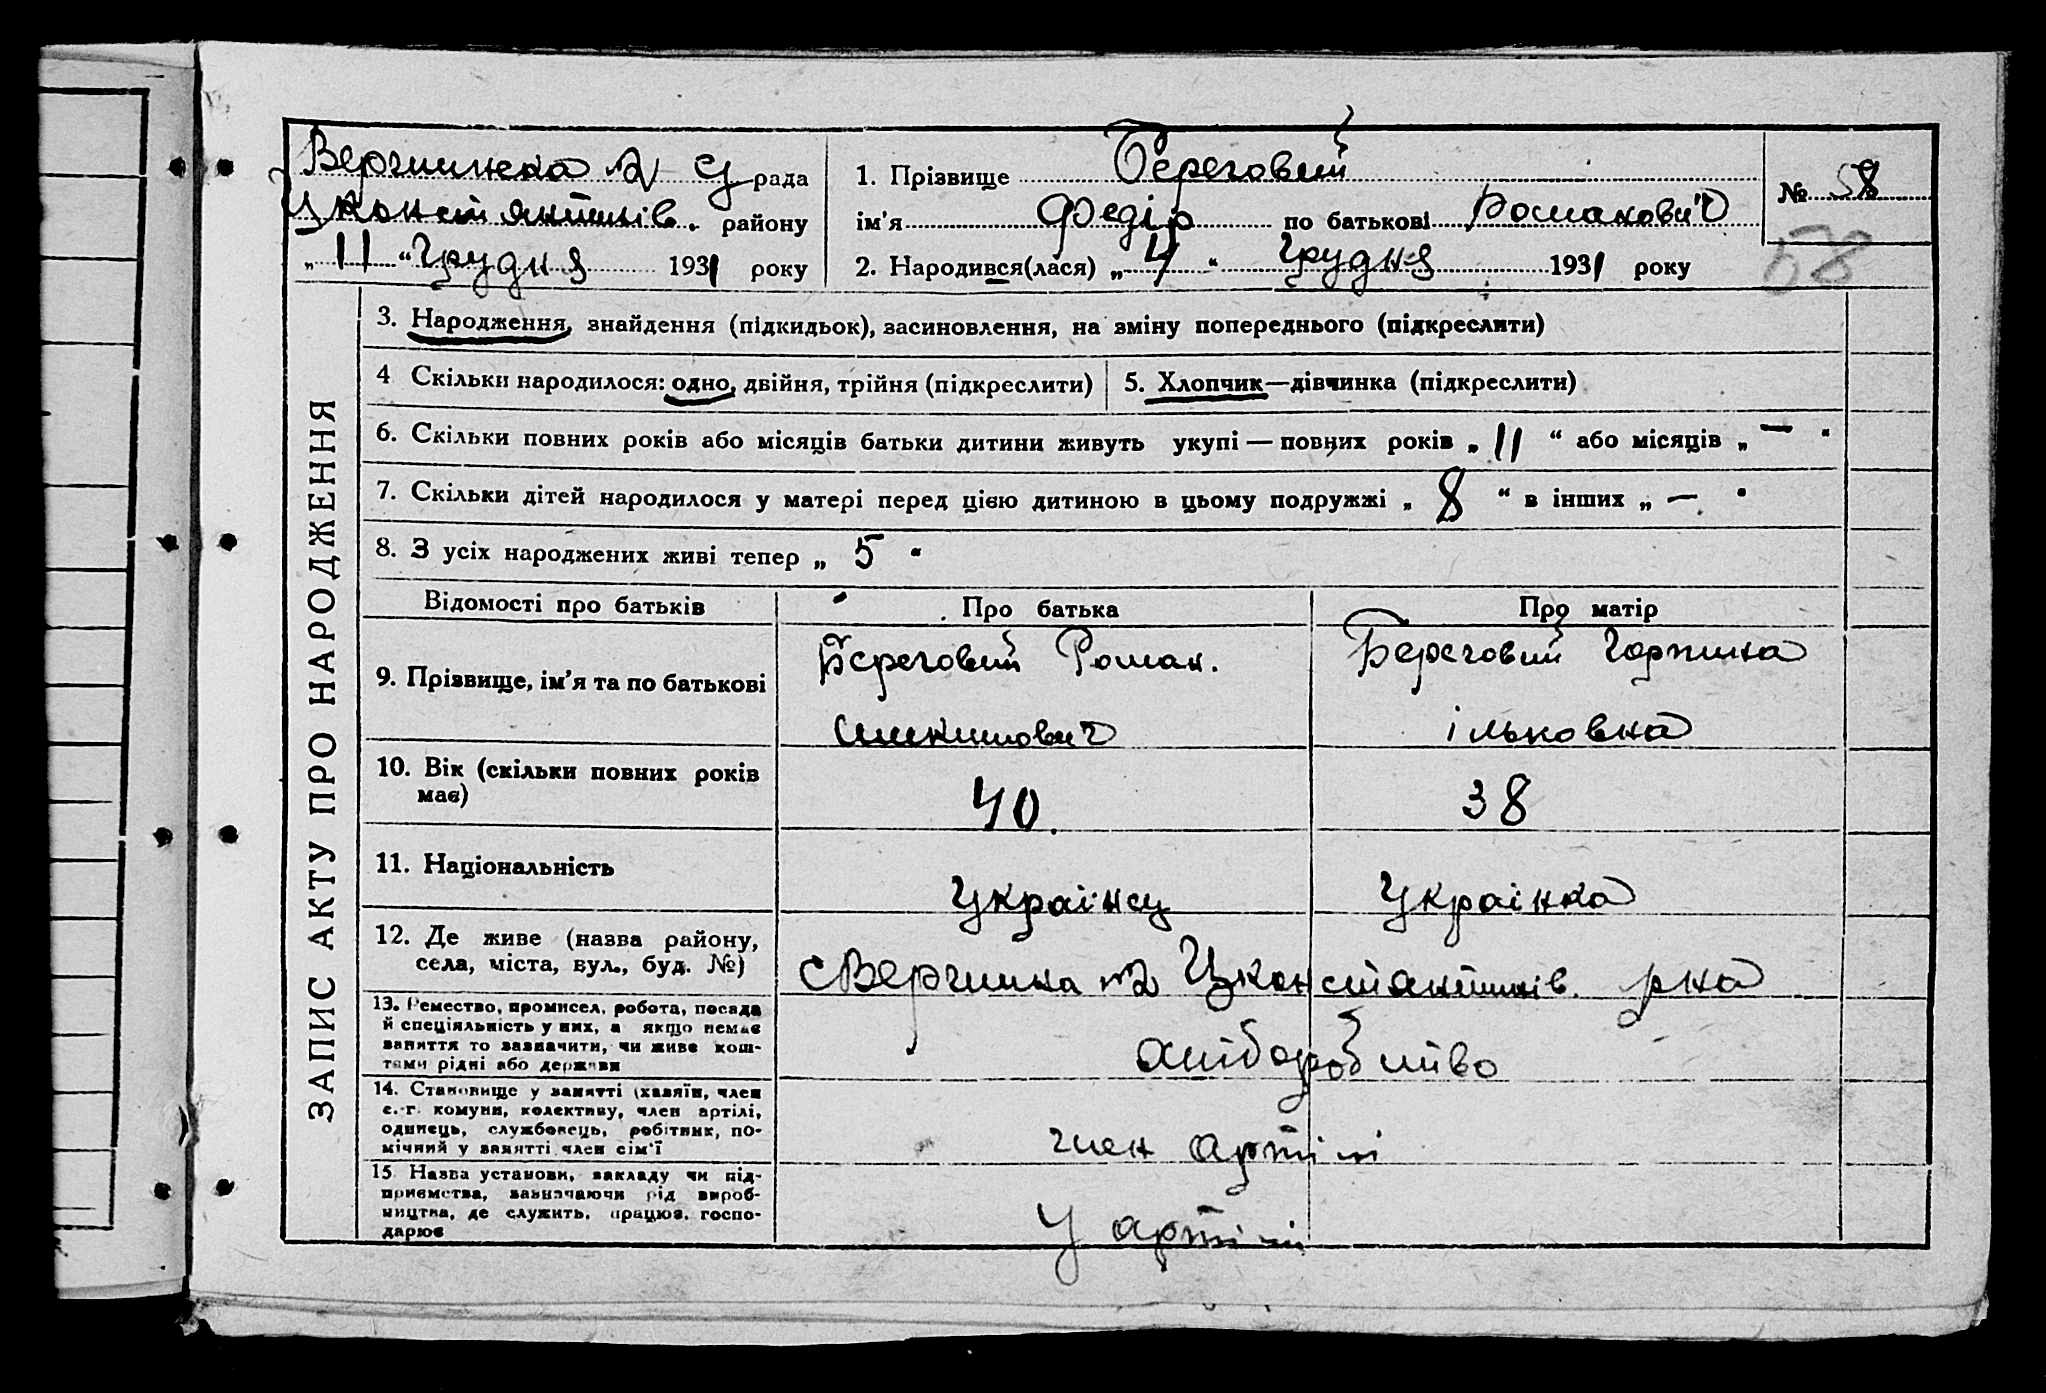 Вершинска №2 С рада
Цконстянтинів. району
„ 11 “ Грудня 1931 року
1. Прізвище Береговий
ім'я Федір по батькові Романович
2. Народився(лася) „ 4 “ Грудня 1931 року
№ 58
58
ЗАПИС АКТУ ПРО НАРОДЖЕННЯ
3. Народження, знайдення (підкидьок), засиновлення, на зміну попереднього (підкреслити)
4 Скільки народилося: одно, двійня, трійня (підкреслити)
5. Хлопчик—дівчинка (підкреслити)
6. Скільки повних років або місяців батьки дитини живуть укупі — повних років „ 11 “ або місяців „ — “
7. Скільки дітей народилося у матері перед цією дитиною в цьому подружжі „ 8 “ в інших „ — “
8. З усіх народжених живі тепер „ 5 “
Відомості про батьків
Про батька
Про матір
9. Прізвище, ім'я та по батькові
Береговий Роман.
Береговий Горпина
ільковна
10. Вік (скільки повних років
має)
40.
38
11. Національність
Українец
Українка
12. Де живе (назва району,
села, міста, вул., буд. №)
с Вершина №2 Цконстянтинів. рна
13. Ремество, промисел, робота, посада
й спеціяльність у них, а якщо немає
заняття то зазначити, чи живе кош-
тами рідні або держави
хліборобство
14. Становище у занятті (хазяїн, член
с.-г. комуни, колективу, член артілі,
одинець, службовець, робітник, по-
мічний у занятті член сім'ї
член артілі
15. Назва установи, закладу чи під-
приємства, зазначаючи рід вироб-
ництва, де служить, працює, госпо-
дарює
У артілі